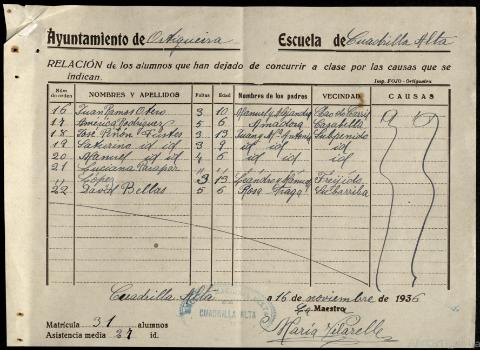 Ayuntamiento de Ortigueira Escuela de Cuadrilla Alta
RELACIÓN de los alumnos que han dejado de concurrir a clase por las causas que se
indican.
Imp. FOJO - Ortigueira
Núm. de orden NOMBRES Y APELLIDOS Faltas Edad Nombres de los padres VECINDAD CAUSAS
16 Juan Ramos Otero 3 10 Manuel y
17 America Rodríguez 5 6
18 José Piñon Fustes 3 13 Juan y Mª Antonia
19 Saturino id id 3 9 id id
20 Manuel id id 4 6 id id
21 Luciana
López 3 13 Leandro y Manuela Freijido
22 David Bellas 5 6 Rosa
Cuadrilla Alta a 16 de noviembre de 1936
La Maestro
CUADRILLA ALTA
María Vilarelle
Matrícula 31 alumnos
Asistencia media 27 id.